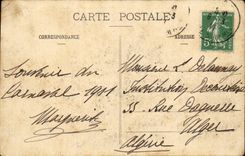 CARTE POSTALE
CORRESPONDANCE
ADRESSE
Souvenir du
Carnaval 1911
Marguerite
Monsieur L. Delaunay
Instituteur
35 Rue Daguerre
Alger
Algérie